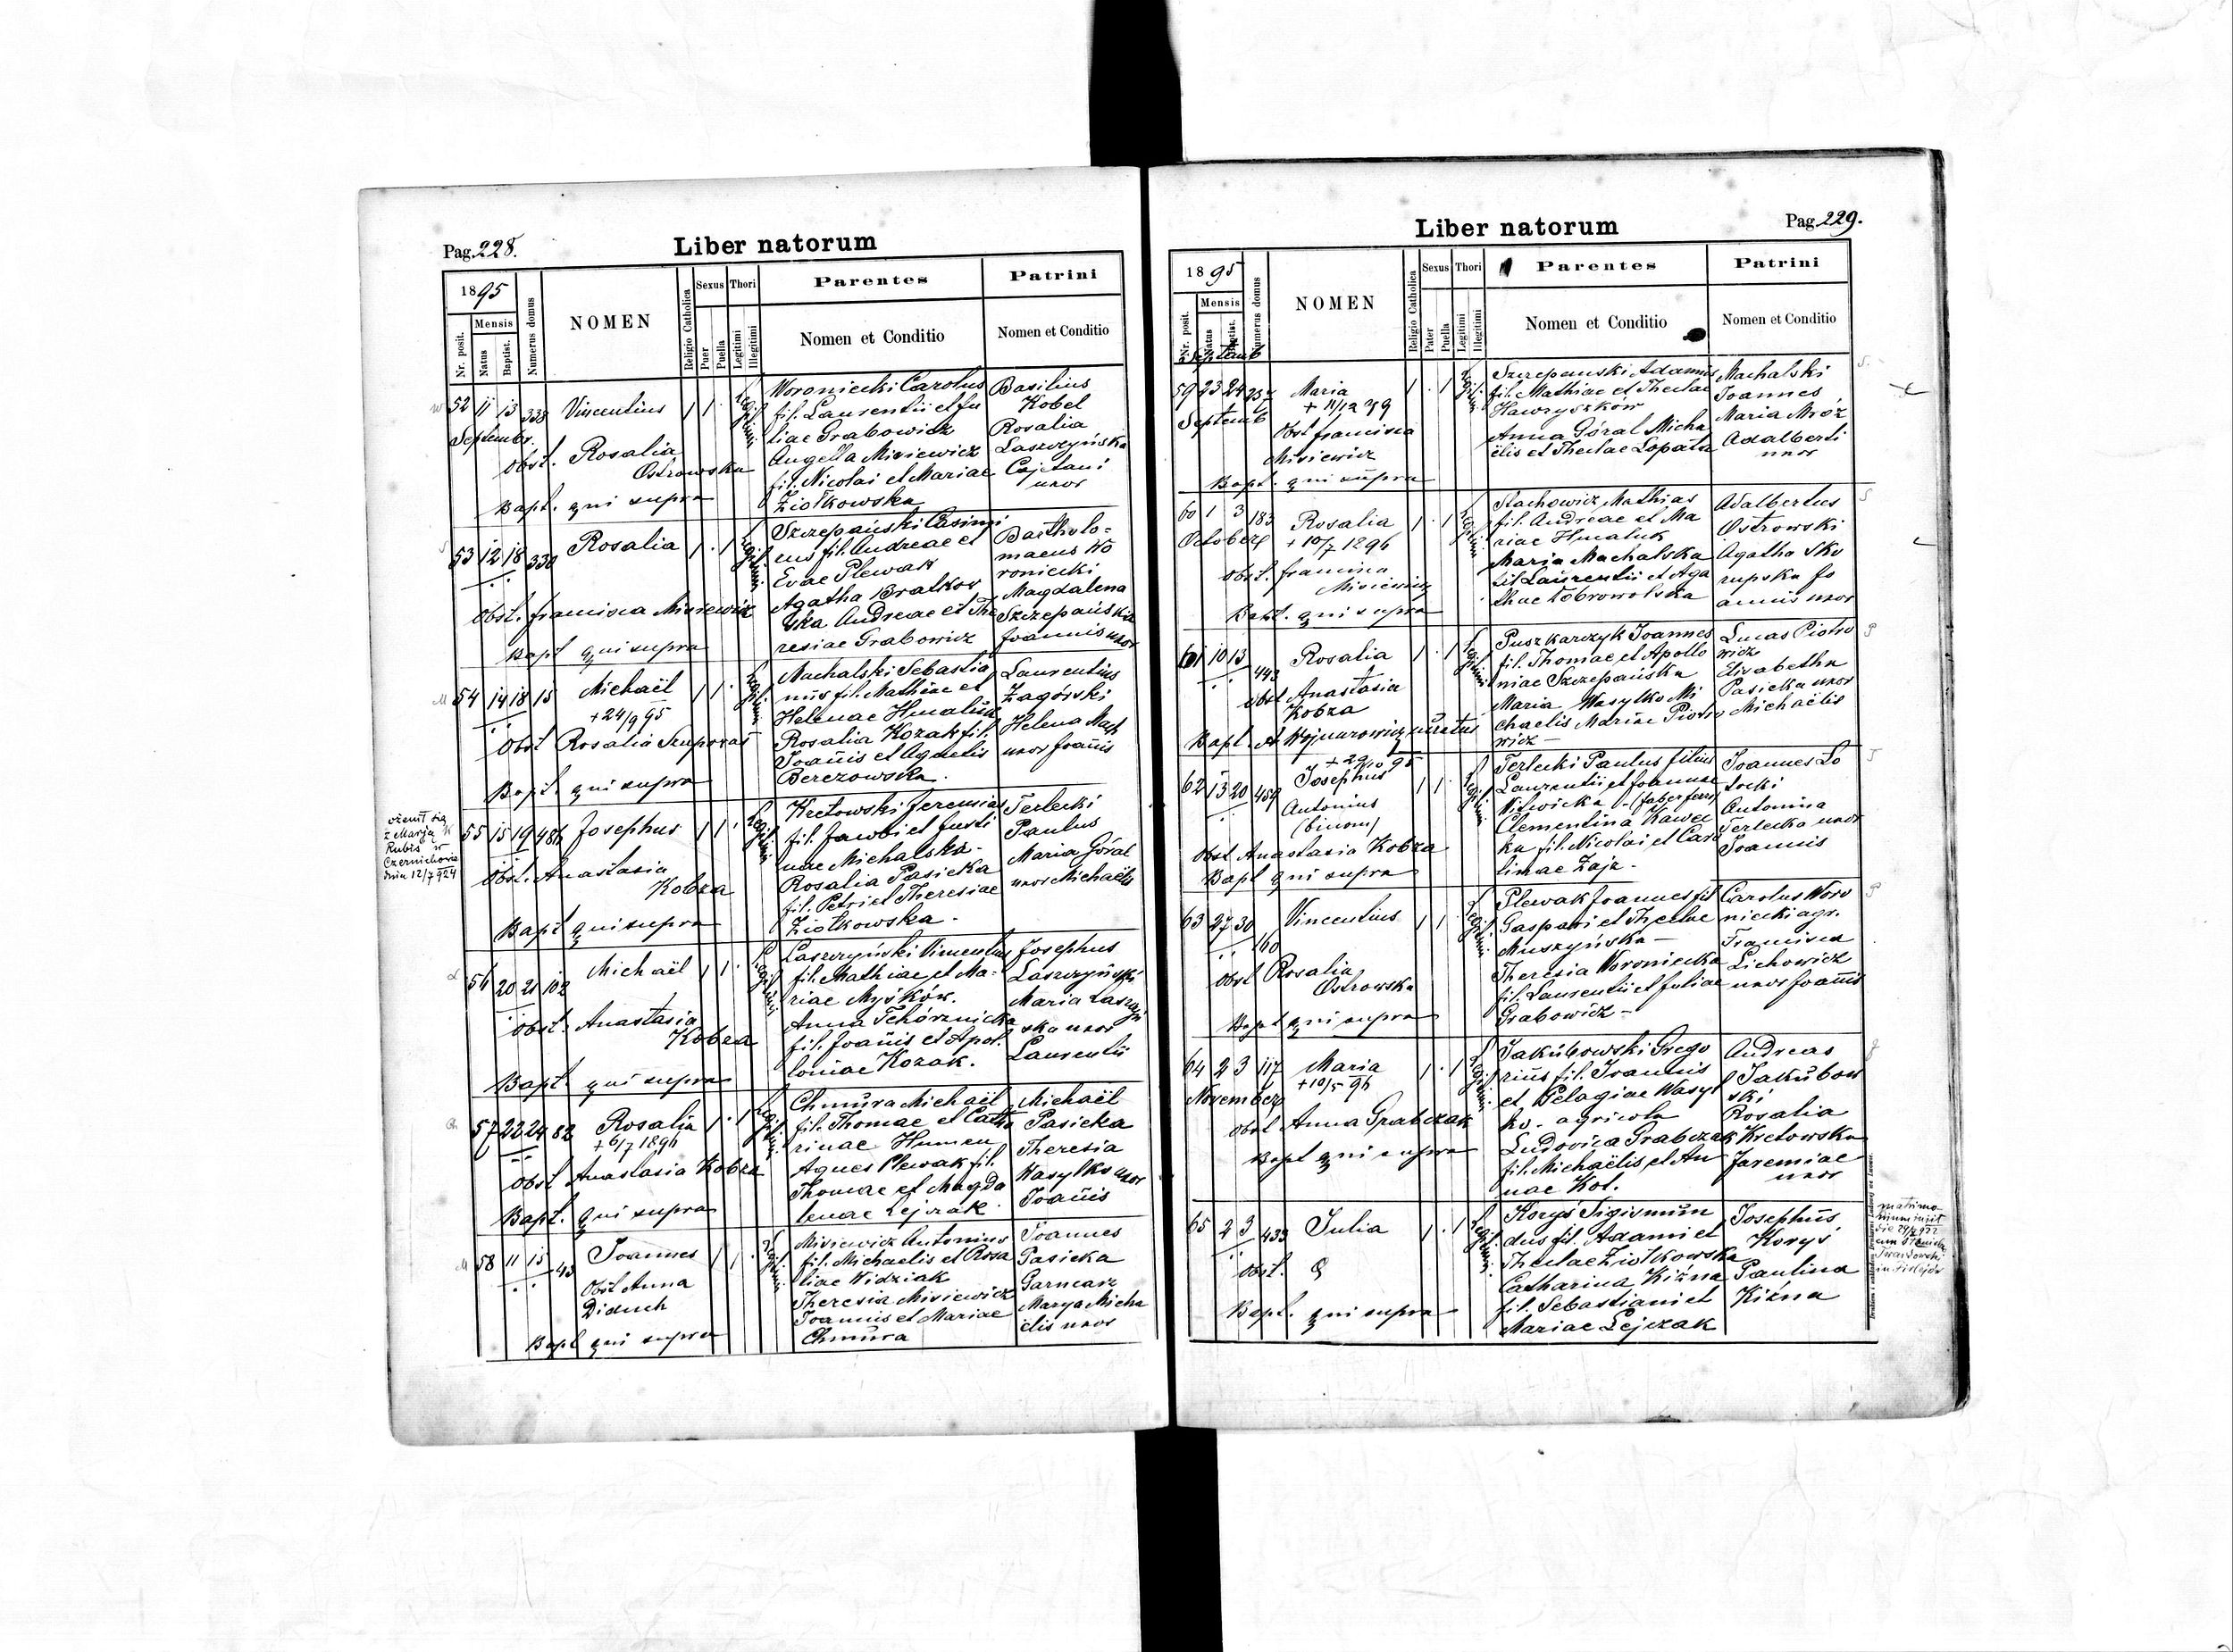 Pag. 228.
Liber natorum
1895
Nr. posit.
Mensis
Natus
Baptist.
Numerus domus
NOMEN
Religio Catholica
Sexus
Puer
Puella
Thori
Legitimi
Illegitimi
Parentes
Nomen et Conditio
Patrini
Nomen et Conditio
52 11 13 338 Vincentius 1 1 .
Septembr.
Obst. Rosalia
Ostrowska
Bapt. qui supra
Woroniecki Carolus
fil. Laurentii et Ju
liae Grabowicz
Angella Misiewicz
fil. Nicolai et Mariae
Ziołkowska
Basilius
Kobel
Rosalia
Laszczyńska
Cajetani
uxor
53 12 18 330 Rosalia 1 . 1
Obst. Francisca Misiewicz
Bapt qui supra
Szczepański Casimi
rus fil. Andreae et
Evae Plewak
Agatha Bratkow
ska Andreae et The
resiae Grabowicz
Bartholo=
maeus Wo
roniecki
Magdalena
Szczepańska
Joannis uxor
54 14 18 15 Michaël 1 1 .
+ 24/9 95
Obst Rosalia
Bapt. qui supra
Machalski Sebastia
nus fil. Mathiae et
Helenae Hmaluk
Rosalia Kozak fil.
Joañis et Agnetis
Berezowska.
Laurentius
Zagórski
Helena Mach
uxor Joañis
ożenił się
z Marją
Rubis w
Czernichowie
dnia 12/7 924
55 15 19 486 Josephus 1 1 .
Obst. Anastasia
Kobza
Bapt qui supra
Kretowski Jeremias
fil. Jacobi et Justi
nae Michalska -
Rosalia Pasieka
fil. Petri et Theresiae
Ziołkowska -
Terlecki
Paulus
Maria Góral
uxor Michaëlis
56 20 21 102 Michaël 1 1 .
Obst. Anastasia
Kobza
Bapt. qui supra
Laszczyński Vincentius
fil. Mathiae et Ma-
riae Myśków.
Anna Tchórznicka
fil. Joañis et Apol.
loniae Kozak.
Josephus
Laszczyński
Maria Laszczyń
ska uxor
Laurentii
57 22 24 82 Rosalia 1 . 1
+ 6/7 1896
Obst Anastasia Kobza
Bapt. qui supra
Chmura Michaël
fil. Thomae et Catha
rinae Humen
Agnes Plewak fil.
Thomae et Magda
lenae Lejzak
Michaël
Pasieka
Theresia
Wasylko uxor
Joañis
58 11 15 43 Joannes 1 1 .
Obst Anna
Diduch
Bapt qui supra
Misiewicz Antonius
fil. Michaelis et Rosa
liae Widziak
Theresia Misiewicz
Joannis et Mariae
Chmura
Joannes
Pasieka
Garncarz
Marya Micha
ëlis uxor
Pag 229.
Liber natorum
1895
Nr. posit.
Mensis
Natus
Baptist.
Numerus domus
NOMEN
Religio Catholica
Sexus
Puer
Puella
Thori
Legitimi
Illegitimi
Parentes
Nomen et Conditio
Patrini
Nomen et Conditio
59 23 24 357 Maria 1 . 1
Septemb
Obst Francisca
Misiewicz
Bapt. qui supra
Szczepanski Adamus
fil. Mathiae et Theclae
Hawryszków
Anna Góral Micha
ëlis et Theclae Lopata
Machalski
Joannes
Maria Mróz
Adalberti
uxor
60 1 3 183 Rosalia 1 . 1
October + 10/7 1896
obst. Francisca
Misiewicz
Bapt. qui supra
Stachowicz Mathias
fil. Andreae et Ma
riae Hmaluk
Maria Machalska
fil Laurentii et Aga
thae Dobrowolska
Adalbertus
Ostrowski
Agatha Sko
rupska Jo
annis uxor
61 10 13 443 Rosalia 1 . 1
obst Anastasia
Kobza
Puszkarczyk Joannes
fil. Thomae et Apollo
niae Szczepańska
Maria Wasylko Mi
chaelis Mariae Piotro
wicz -
Lucas Piotro
wicz
Elisabetha
Pasieka uxor
Michaëlis
+ 29/10 95
62 13 20 459 Josephus 1 1 .
Antonius
(binom)
Obst Anastasia Kobza
Bapt qui supra
Terlecki Paulus filius
Laurentii et Joannae
Witwicka - (faber ferr)
Clementina Kawec
ka fil. Nicolai et Caro
linae Zajz -
Joannes Lo
tocki
Antonina
Terlecka uxor
Joannis
63 27 30 160 Vincentius 1 1 .
Obst Rosalia
Ostrowska
Bapt qui supra
Plewak Joannes fil
Gaspari et Theclae
Muszyńska -
Theresia Woroniecka
fil. Laurentii et Juliae
Grabowicz -
Carolus Woro
niecki agr.
Francisca
Lichowicz
uxor Joañis
64 2 3 117 Maria 1 . 1
November + 10/5 96
obst Anna Grabczak
Bapt qui supra
Jakubowski Grego
rius fil. Joannis
et Pelagiae Wasyl
ko - agricola
Ludovica Grabczak
fil. Michaëlis et An
nae Kot.
Andreas
Jakubow
ski
Rosalia
Kretowska
Jaremiae
uxor
65 2 3 433 Julia 1 . 1
Obst.
Bapt. qui supra
Koryś Sigismun
dus fil. Adami et
Theclae Ziołkowska
Catharina Kiźna
fil. Sebastiani et
Mariae Lejczak
Josephus
Koryś
Paulina
Kiźna
matrimo-
nium iniit